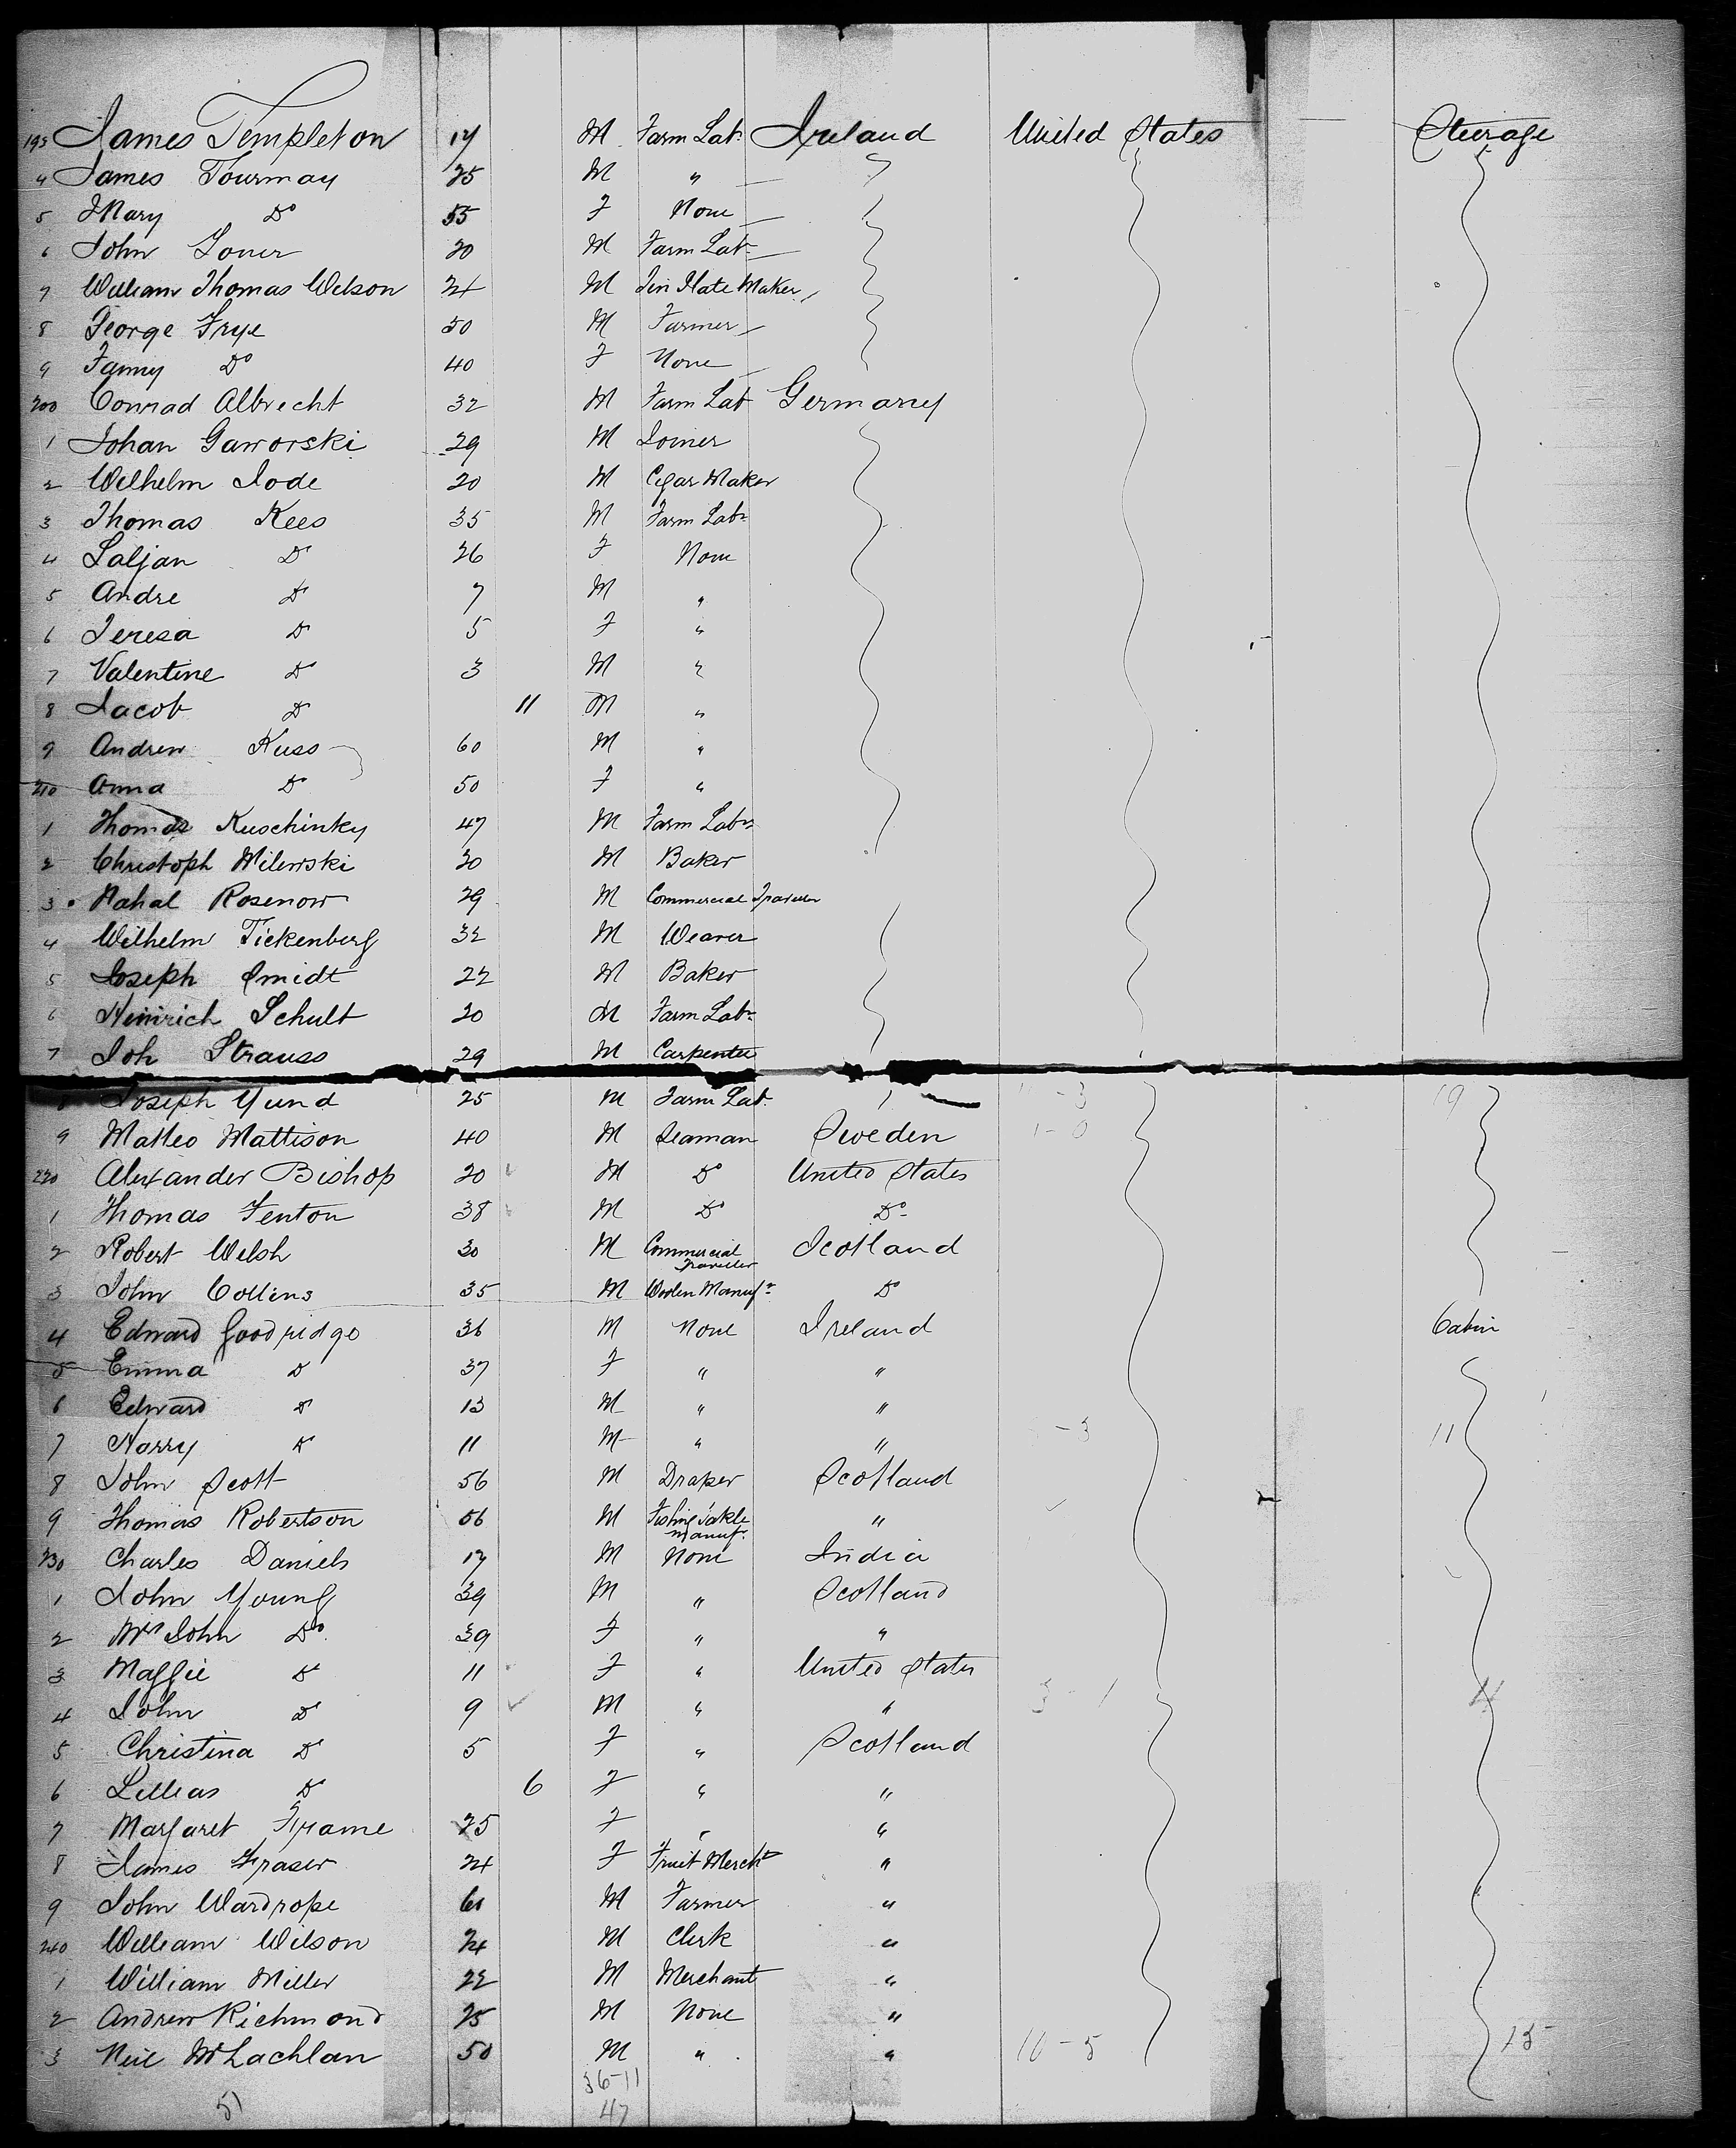 193 James Templeton 17 M Farm Labr Ireland United States Steerage
4 James Tourmay 25 M "
5 Mary Do 55 F None
6 John Toner 20 M Farm Labr
7 William Thomas Wilson 24 M Tin Plate Maker
8 George Frye 50 M Farmer
9 Fanny Do 40 F None
200 Conrad Albrecht 32 M Farm Lab Germany
1 Johan Gaworski 29 M Joiner
2 Wilhelm Jode 20 M Cigar Maker
3 Thomas Kees 35 M Farm Labr
4 Saljan Do 26 F None
5 Andre Do 7 M "
6 Teresa Do 5 F "
7 Valentine Do 3 M "
8 Jacob Do 11 M "
9 Andrew Kuss 60 M "
210 Anna Do 50 F "
1 Thomas Kuschinky 47 M Farm Labr
2 Christoph Milewski 30 M Baker
3 Nahal Rosenow 29 M Commercial Traveller
4 Wilhelm Tickenberg 32 M Weaver
5 Joseph Smidt 22 M Baker
6 Heinrich Schult 20 M Farm Labr
7 Joh Strauss 29 M Carpenter
8 Joseph Yund 25 M Farm Lab. -3 19
9 Matteo Mattison 40 M Seaman Sweden 1-0
220 Alexander Bishop 20 M Do United States
1 Thomas Fenton 38 M Do Do
2 Robert Welsh 30 M Commercial Traveller Scotland
3 John Collins 35 M Woolen Manufr Do
4 Edward Goodridge 36 M None Ireland Cabin
5 Emma Do 37 F " "
6 Edward Do 13 M " "
7 Harry Do 11 M " " -3 11
8 John Scott 56 M Draper Scotland
9 Thomas Robertson 56 M Fishing Takle manufr "
230 Charles Daniels 17 M None India
1 John Young 39 M " Scotland
2 Mrs John Do 39 F " "
3 Maggie Do 11 F " United States
4 John Do 9 M " " 3-1 4
5 Christina Do 5 F " Scotland
6 Lillias Do 6 F " "
7 Margaret Frame 25 F " "
8 James Fraser 24 F Fruit Mercht "
9 John Wardrope 61 M Farmer "
240 William Wilson 24 M Clerk "
1 William Miller 22 M Merchant "
2 Andrew Richmond 25 M None "
3 Neil McLachlan 50 M " " 10-5 15
36-11
51 47